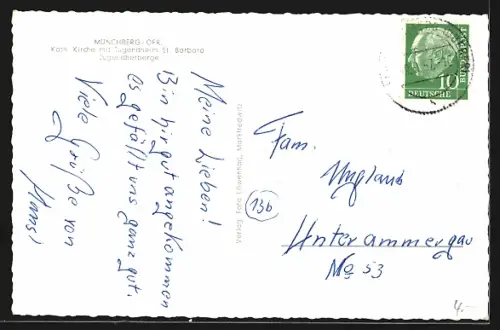 MÜNCHBERG - OFR.
Kath. Kirche mit Jugendheim St. Barbara
Jugendherberge
Meine Lieben!
Bin hir gut angekommen
es gefällt uns ganz gut.
Viele Grüße von
Hansi
Verlag: Foto Löwenhag, Marktredwitz
10
DEUTSCHE
BUNDESPOST
Fam.
Unglaub
13b
Unterammergau
No 53
4.-